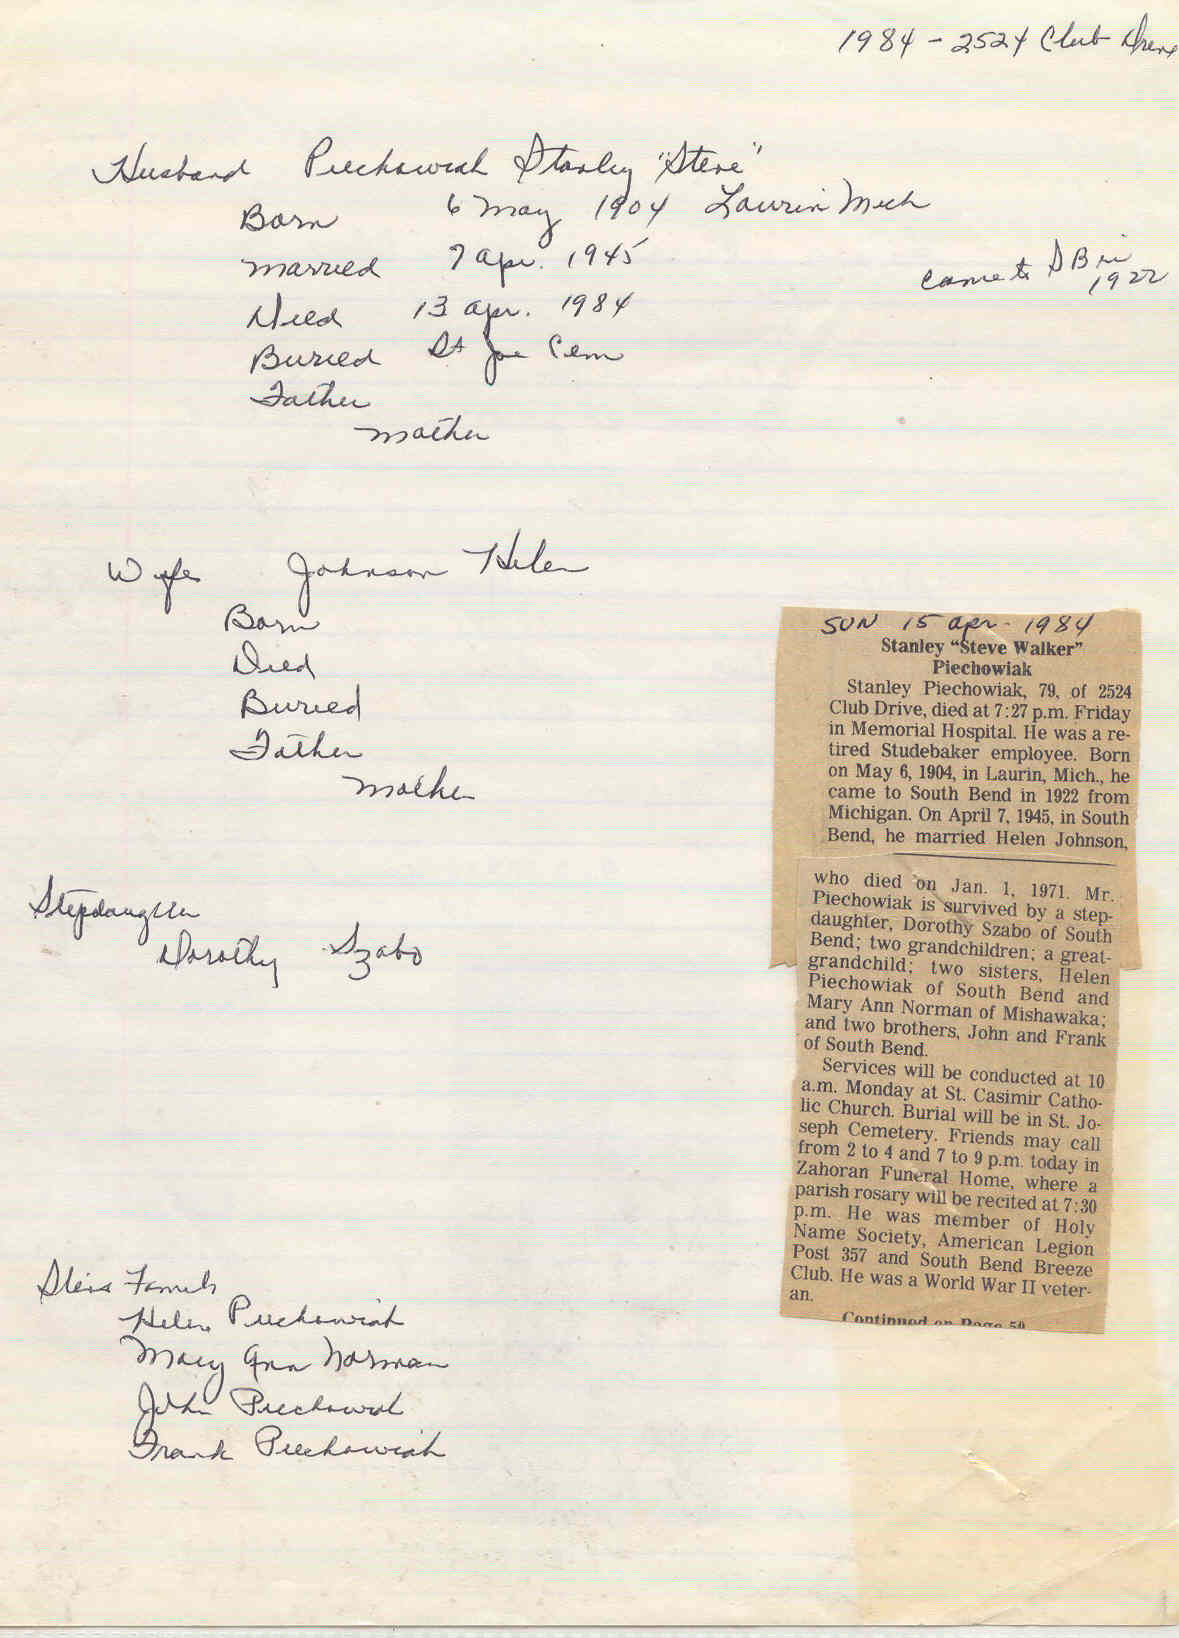 1984 - 2524 Club Drive
Husband Piechowiak Stanley "Steve"
Born 6 May 1904 Laurin Mich
Married 7 Apr. 1945
came to S B in
1922
Died 13 Apr. 1984
Buried St Joe Cem
Father
Mother
Wife Johnson Helen
Born
Died
Buried
Father
Mother
Stepdaughter
Dorothy Szabo
Steves Family
Helen Piechowiak
Mary Ann Norman
John Piechowiak
Frank Piechowiak
SUN 15 Apr - 1984
Stanley “Steve Walker”
Piechowiak
Stanley Piechowiak, 79, of 2524
Club Drive, died at 7:27 p.m. Friday
in Memorial Hospital. He was a re-
tired Studebaker employee. Born
on May 6, 1904, in Laurin, Mich., he
came to South Bend in 1922 from
Michigan. On April 7, 1945, in South
Bend, he married Helen Johnson,
who died on Jan. 1, 1971. Mr.
Piechowiak is survived by a step-
daughter, Dorothy Szabo of South
Bend; two grandchildren; a great-
grandchild; two sisters, Helen
Piechowiak of South Bend and
Mary Ann Norman of Mishawaka;
and two brothers, John and Frank
of South Bend.
Services will be conducted at 10
a.m. Monday at St. Casimir Catho-
lic Church. Burial will be in St. Jo-
seph Cemetery. Friends may call
from 2 to 4 and 7 to 9 p.m. today in
Zahoran Funeral Home, where a
parish rosary will be recited at 7:30
p.m. He was member of Holy
Name Society, American Legion
Post 357 and South Bend Breeze
Club. He was a World War II veter-
an.
Continued on Page 50